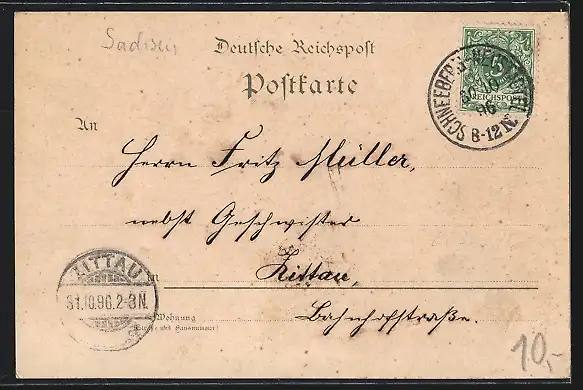 Sachsen
Deutsche Reichspost
Postkarte
5
REICHSPOST
SCHNEEBERG-NEUSTÄDTEL
30 10
96
8-12 N.
An
Herrn Fritz Müller,
nebst Geschwister
in Zittau,
ZITTAU
31.10.96.2-3N.
Wohnung
(Straße und Hausnummer)
Bahnhofstraße.
10,-